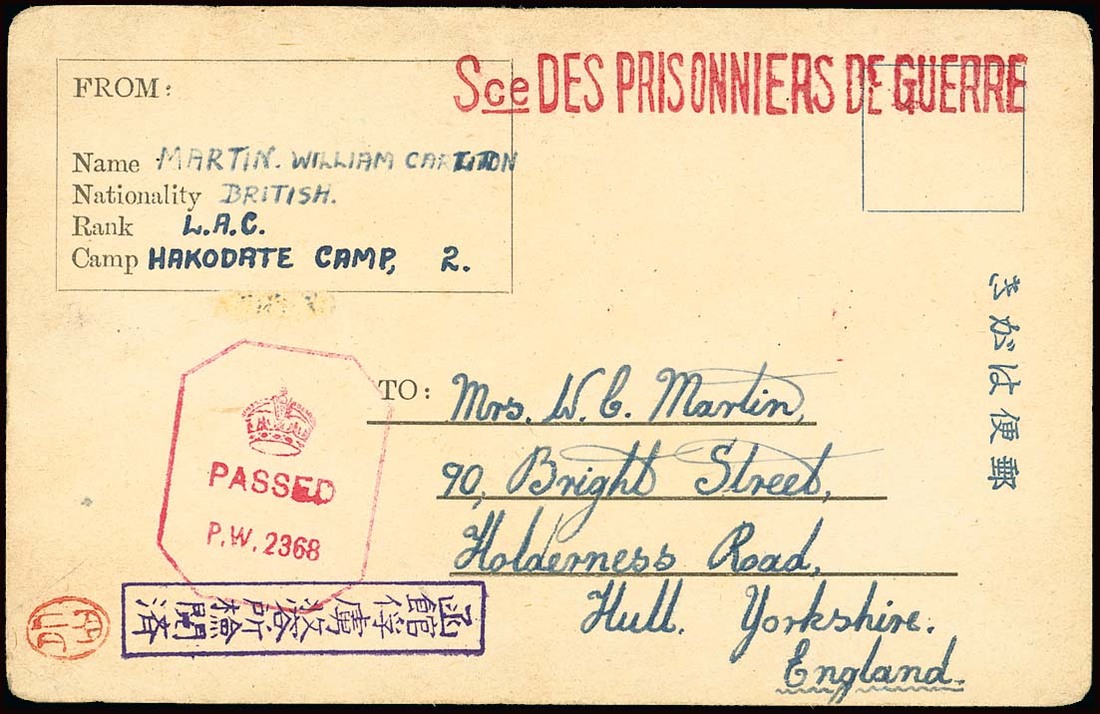 Sce DES PRISONNIERS DE GUERRE
FROM:
Name MARTIN. WILLIAM CARLTON
Nationality BRITISH.
Rank L.A.C.
Camp HAKODATE CAMP, 2.
郵便はがき
TO: Mrs. W. C. Martin,
90, Bright Street,
Holderness Road,
Hull. Yorkshire.
England.
PASSED
P.W. 2368
函館俘虜収容所検閲済